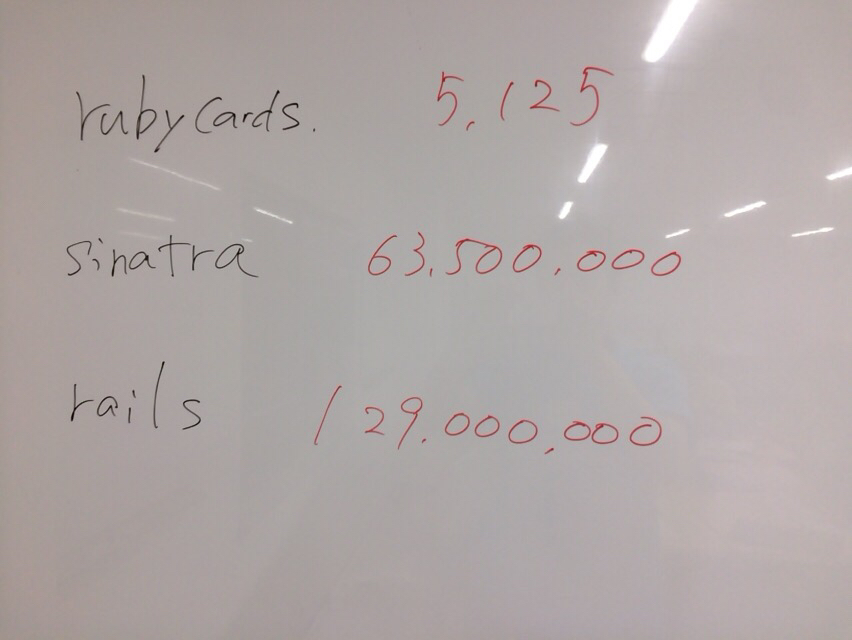 rubycards. 5,125
sinatra 63,500,000
rails 129,000,000